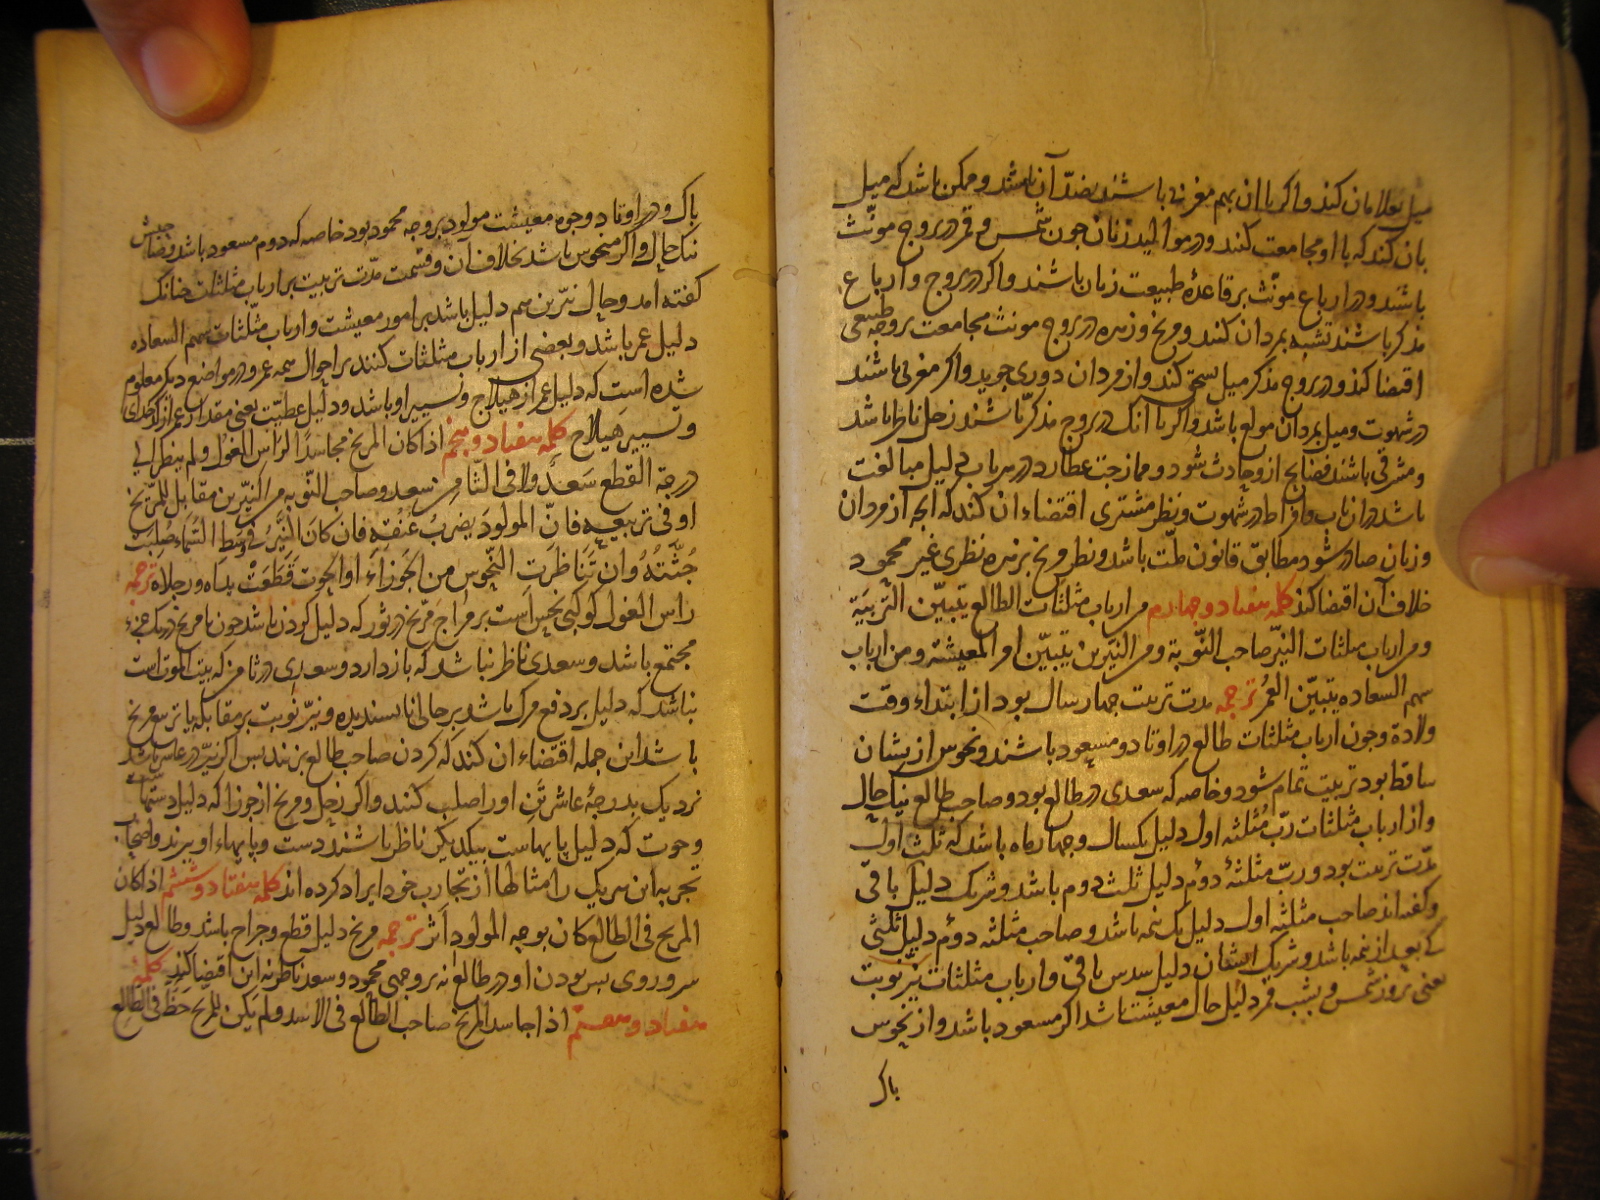 میل بغلامان کند و اکر با ان بهم مغربی باشند بضد آن باشد و ممکن باشد که میل
بان کند که با او مجامعت کنند و در موالید زنان چون شمس و قمر در بروج مونث
باشند و در ارباع مونث بر قاعدهٔ طبیعت زنان باشند و اکر در بروج و ارباع
مذکر باشند تشبه بمردان کنند و مریخ و زهره در بروج مونث مجامعت بر وجه طبیعی
اقتضا کند و در بروج مذکر میل بسحق کند و از مردان دوری جوید و اکر مغربی باشند
در شهوت و میل بمردان مولع باشد و اکر با انک در بروج مذکر باشند زحل ناظر باشد
و مشرقی باشند فضایح از و حادث شود و ممازجت عطارد در هر باب دلیل مبالغت
باشد در ان باب و افراط در شهوت و نظر مشتری اقتضاء ان کند که انچه از مردان
و زنان صادر شود مطابق قانون ملت باشد و نظر مریخ بر زهره نظری غیر محمود
خلاف آن اقتضا کند کلمه هفتاد و چهارم من ارباب مثلثات الطالع یتبین التربیة
و من ارباب مثلثات النیر صاحب النوبة و من النیرین یتبین امر المعیشة و من ارباب
سهم السعاده یتبین العمر ترجمه مدت تربیت چهار سال بود از ابتداء وقت
ولادة و چون ارباب مثلثات طالع در اوتاد و مسعود باشند و نحوس از یشان
ساقط بود تربیت تمام شود و خاصه که سعدی در طالع بود و صاحب طالع نیک حال
و از ارباب مثلثات رب مثلثه اول دلیل یکسال و چهار ماه باشد که ثلث اول
مدت تربیت بود و رب مثلثهٔ دوم دلیل ثلث دوم باشد و شریک دلیل باقی
و کفته اند صاحب مثلثه اول دلیل یک نیمه باشد و صاحب مثلثه دوم دلیل ثلثی
که بعد از نیمه باشد و شریک ایشان دلیل سدس باقی و ارباب مثلثات نیر نوبت
یعنی بروز شمس و بشب قمر دلیل حال معیشت باشد اکر مسعود باشد و از نحوس
پاک
پاک و در اوتاد وجوه معیشت مولود بر وجه محمود بود خاصه که دوم مسعود باشد و صاحبش
نیک حال و اکر منحوس باشد بخلاف آن و قسمت مدت تربیت بر ارباب مثلثات چنانک
کفته امد و حال نیرین هم دلیل باشد بر امور معیشت و ارباب مثلثات سهم السعاده
دلیل عمر باشد و بعضی از ارباب مثلثات کنند بر احوال همه عمر و در مواضع دیکر معلوم
شده است که دلیل عمر از هیلاج و تسییر او باشد و دلیل عطیت یعنی مقدار عمر از کدخدای
و تسییر هیلاج کلمه هفتاد و پنجم اذا کان المریخ مجاسدا لراس الغول و لم ینظر الی
درجة القطع سعد و لا فی الثامن سعد و صاحب النوبه من النیرین مقابل للمریخ
او فی تربیعه فان المولود یضرب عنقه فان کان النیر فی وسط السماء صلبت
جثته و ان تناظرت النحوس من الجوزاء او الحوت قطعت یداه و رجلاه ترجمه
راس الغول کوکبی نحس است بر مزاج مریخ در ثور که دلیل کردن باشد چون با مریخ در یک جزء
مجتمع باشد و سعدی ناظر نباشد که باز دارد و سعدی در ثامن که بیت الموت است
نباشد که دلیل بر دفع مرک باشد بر حالی ناپسندیده و نیر نوبت بر مقابله یا تربیع مریخ
باشد این جمله اقتضاء ان کند که کردن صاحب طالع بزنند پس اکر نیر در عاشر باشد
نزدیک بدرجهٔ عاشر تن او را صلب کنند و اکر زحل و مریخ از جوزا که دلیل دستهاست
و حوت که دلیل پایهاست بیکدیکر ناظر باشند دست و پایهاء او ببرند و اصحاب
تجربه این هر یک را مثالها از تجارب خود ایراد کرده اند کلمه هفتاد و ششم اذا کان
المریخ فی الطالع کان بوجه المولود اثر ترجمه مریخ دلیل قطع و جراح باشد و طالع دلیل
سر و روی پس بودن او در طالع نه بر وجهی محمود و سعد ناظر نه این اقتضا کند کلمهٔ
هفتاد و هفتم اذا جاسد المریخ صاحب الطالع فی الاسد و لم یکن للمریخ حظ فی الطالع